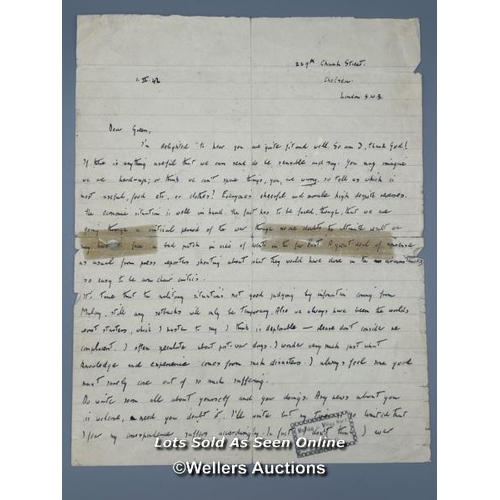 229A Church Street.
Chelsea.
London. S.W.3.
Dear Green,
I'm delighted to hear you are quite fit and well. So am I, thank God!
If there is anything useful that we can send do be sensible and say. You may imagine
we are hard-up; or think we can't spare things, you are wrong, so tell us which is
most useful, food etc, or clothes? Everyone cheerful and morale high despite reverses.
The economic situation is well in hand. The fact has to be faced, though, that we are
going through a critical period of the war though no one doubts the ultimate result
bad patch in view of events in the Far East. A great deal of nonsense
as usual from press reporters shouting about what they would have done in the circumstances
so easy to be arm chair critics.
It's true that the military situation is not good judging by information coming from
Malaya, still any setbacks will only be temporary. Also we always have been the world's
worst starters, which I hasten to say I think is deplorable — please don't consider me
complacent. I often speculate about post-war days. I wonder very much just what
knowledge and experience comes from such disasters. I always feel some good
must surely come out of so much suffering.
Do write soon all about yourself and your doings. Any news about you
is welcome, need you doubt it. I'll write but my time is so limited that
I fear my correspondence suffers accordingly. In fact I don't think I ever
Lots Sold As Seen Online
©Wellers Auctions